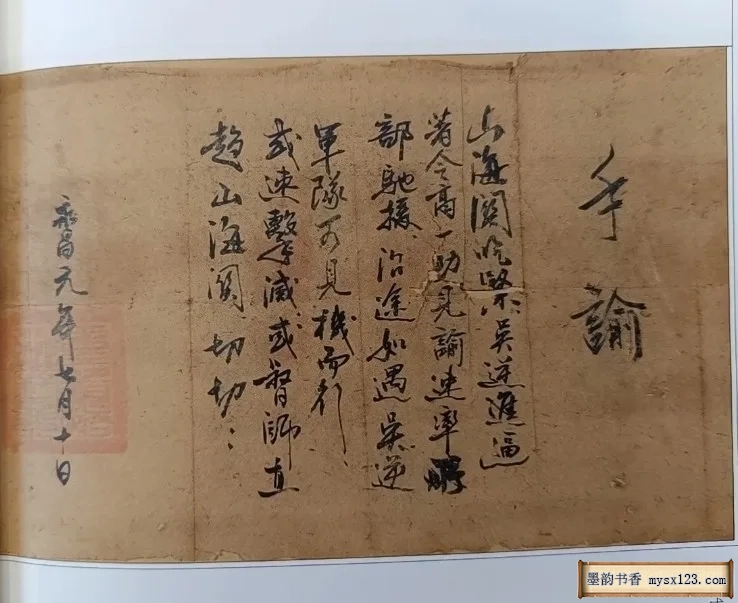 手諭
山海関吃緊吳逆進逼
著令高一功見諭速率
部馳援沿途如遇吳逆
軍隊可見機而行
或速擊滅或督師直
趨山海関切切
永昌元年七月十日
墨韵书香 mysx123.com